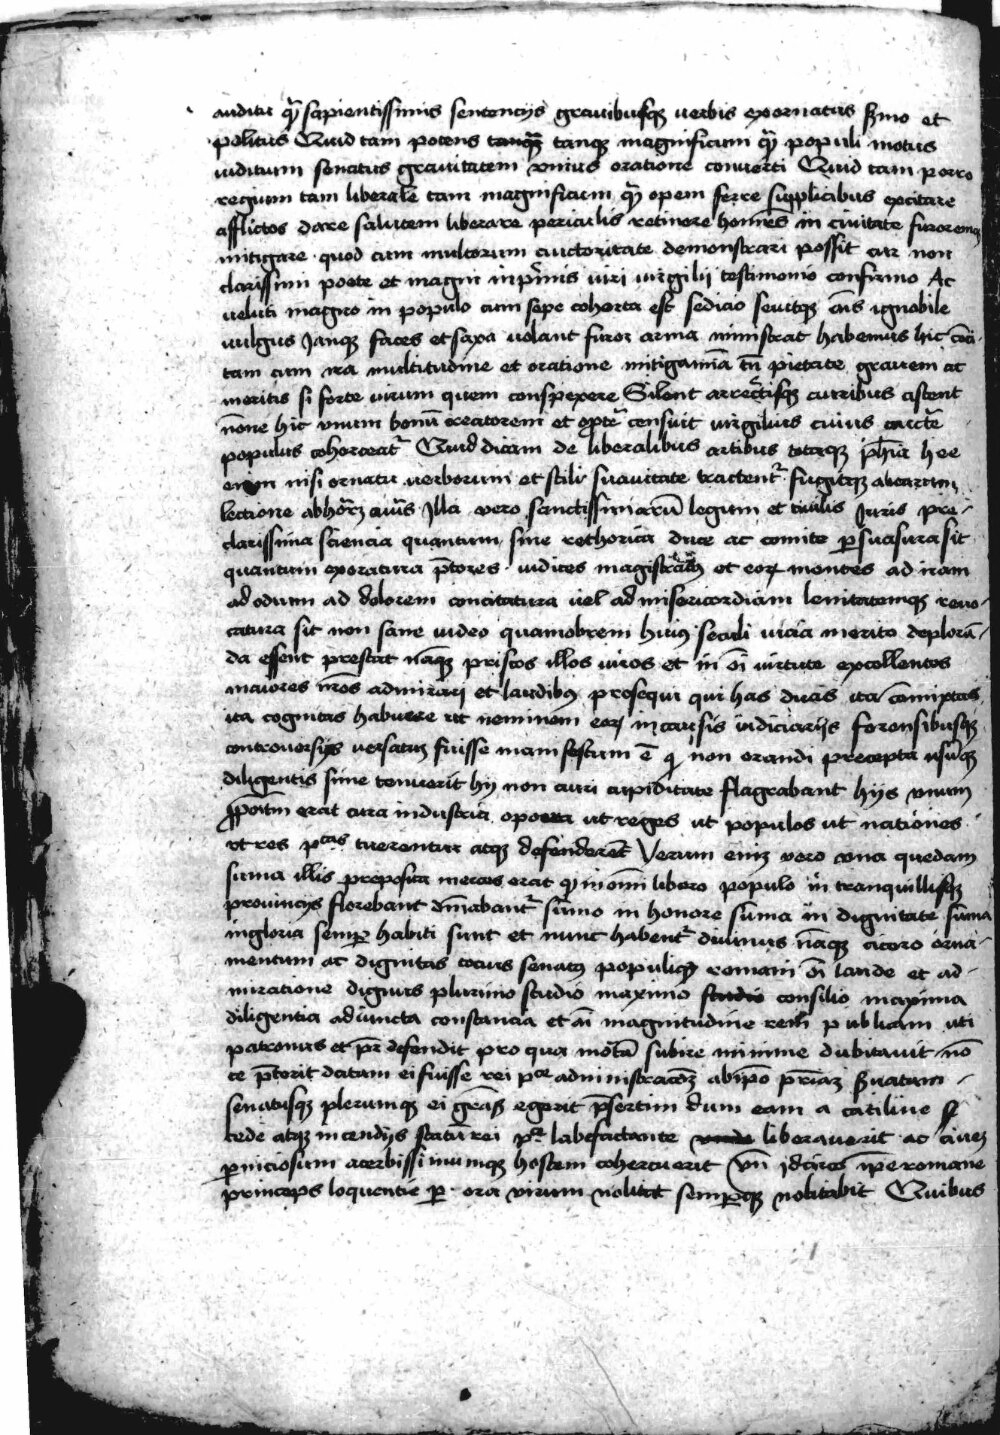 auditu quã sapientissimis sentencijs grauibusq uerbis exornatus sermo et
politus Quid tam potens tamq magnificum quã populi motus
iuditum senatus grauitatem vnius oratione conuerti Quid tam porro
regium tam liberale tam magnificum quã opem ferre supplicibus excitare
afflictos dare salutem liberare periculis retinere homies in ciuitate furoremq
mitigare quod cum multorum auctoritate demonstrari possit cur non
clarissimi poete et magni inprimis uiri virgilij testimonio confirmo Ac
ueluti magno in populo cum sepe coherta est sedicio seuitq ais ignobile
uulgus Jamq faces et saxa uolant furor arma ministrat habemus hic conci-
tam cum ira multitudine et oratione mitigandã tu pietate grauem ac
meritis si forte virum quem conspexere Silent arrectisq auribus astent
none hic vnum bonu oratorem et censuit virgilius cuius
populus coherceat Quid dicam de liberalibus artibus totaq phia hec
enim nisi ornatu uerborum et stili suauitate tractent fugitq
lectione abhorz auis Illa vero sanctissimarũ legum et ciuilis Juris pre-
clarissima sciencia quantum sine rethorica duce ac comite psuasura sit
quantum exoratura ptores iudices magistratus et eorum mentes ad iram
ad odium ad dolorem concitatura uel ad misericordiam lenitatemq reuo-
catura sit non sane uideo quamobrem huius seculi uicia merito deplorã-
da essent prestat naq priscos illos uiros et in oi virtute excellentes
maiores nros admirari et laudibus prosequi qui has duas ita comixtas
ita cognitas habuere ut neminem eorum in causis iudiciarijs forensibusq
controuersijs versatum fuisse manifestum ẽ qui non orandi precepta usumq
diligentissime tenuerit hij non auri cupiditate flagrabant hijs vnum
ppoitum erat cura industria opera ut reges ut populos ut nationes
vt res ptas tuerentur atq defenderet Verum enim vero vna quedam
suma illis preposita merces erat qui in omni libero populo in tranquillisq
prouincijs florebant dnabant sumo in honore suma in dignitate suma
in gloria semper habiti sunt et nunc habent diuinus naq cicero orna-
mentum ac dignitas tocius senatus populiq romani oi laude et ad-
miratione dignus plurimo studio maximo consilio maxima
diligentia adiuncta constancia et ai magnitudine rem publicam uti
patronus et pr defendit pro qua mortẽ subire minime dubitauit no
te pterit datam ei fuisse rei pce administracoẽ ab ipo priaz seruatam
senatusq plerumq ei gras egerit psertim dum eam a catiline
cede atq incendijs statũ rei pce labefactante liberauerit ac ciuem
pniciosum acerbissimumq hostem cohercuerit idcirco ipe romane
princeps loquentie per ora virum uolitat semperq uolitabit Quibus